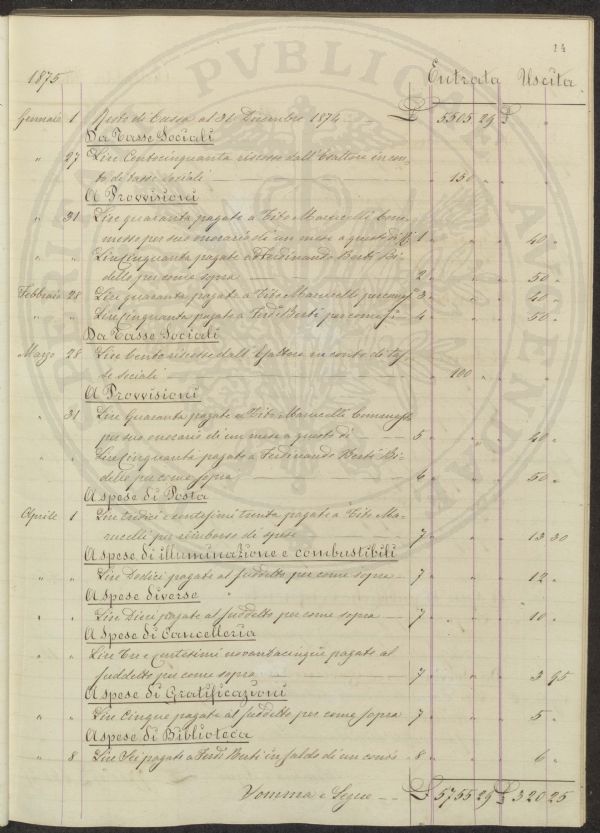 14
1875 Entrata Uscita
Gennaio 1 Resto di Cassa al 31 Dicembre 1874 £ 5505 29 £ "
Da Tasse Sociali
" 27 Lire Centocinquanta riscosse dall'Esattore in con-
to di tasse sociali 150 " "
A Provvisioni
" 31 Lire quaranta pagate a Tito Marucelli Com-
messo per suo onorario di un mese a questo dì 1 " " 40 "
" " Lire Cinquanta pagate a Ferdinando Berti Bi-
dello per come sopra 2 " " 50 "
Febbraio 28 Lire quaranta pagate a Tito Marucelli per come sa 3 " " 40 "
" " Lire Cinquanta pagate a Ferdi Berti per come sa 4 " " 50 "
Da Tasse Sociali
Marzo 28 Lire Cento riscosse dall'Esattore in conto di tas-
se sociali 100 " "
A Provvisioni
" 31 Lire Quaranta pagate a Tito Marucelli Commesso
per suo onorario di un mese a questo dì 5 " " 40 "
" " Lire Cinquanta pagate a Ferdinando Berti Bi-
dello per come sopra 6 " " 50 "
A spese di Posta
Aprile 1 Lire tredici e centesimi trenta pagate a Tito Ma-
rucelli per rimborso di spese 7 " " 13 30
A spese di illuminazione e combustibili
" " Lire Dodici pagate al suddetto per come sopra 7 " " 12 "
A spese diverse
" " Lire Dieci pagate al suddetto per come sopra 7 " " 10 "
A spese di Cancelleria
" " Lire Tre e centesimi novantacinque pagate al
suddetto per come sopra 7 " " 3 95
A spese di Gratificazioni
" " Lire Cinque pagate al suddetto per come sopra 7 " " 5 "
A spese di Biblioteca
" 8 Lire Sei pagate a Ferdi Berti in saldo di un conto 8 " " 6 "
Somma e Segue £ 5755 29 £ 320 25